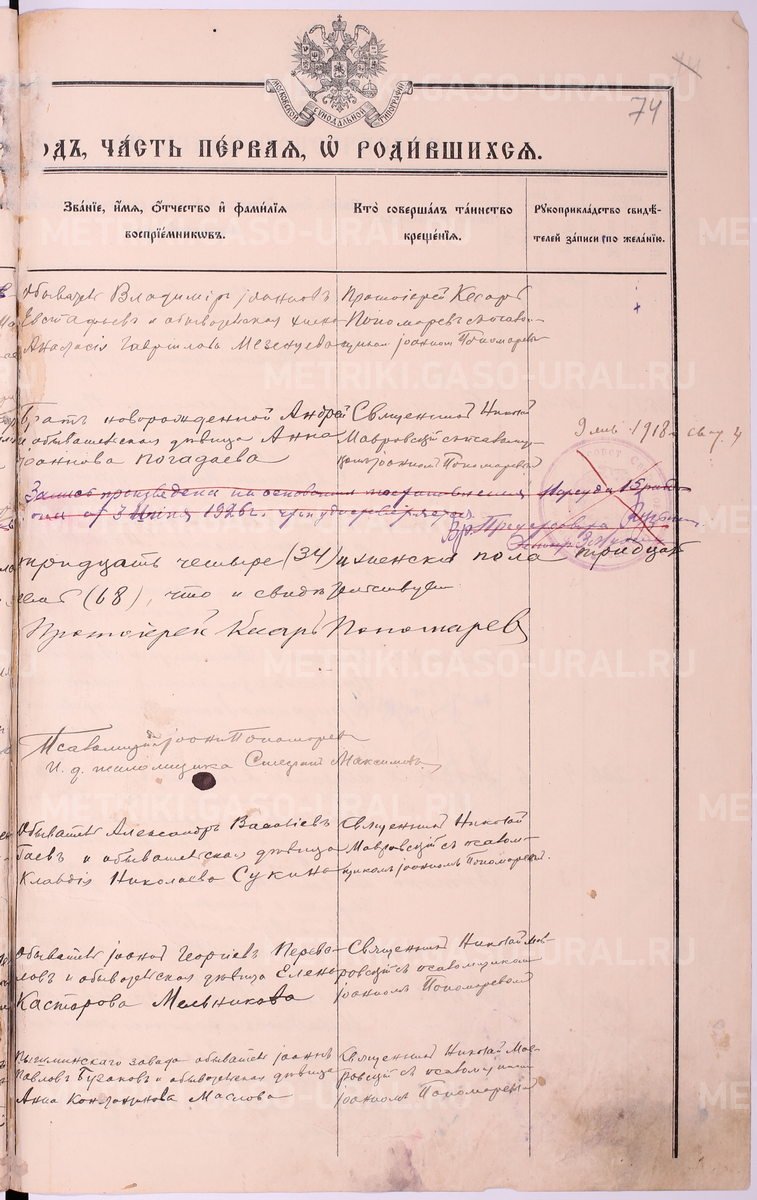 МОСКОВСКОЙ СИНОДАЛЬНОЙ ТИПОГРАФІИ
74
одъ, ча́сть пе́рвая, ѡ҆ роди́вшихсѧ.
Зва́нїе, и҆́мѧ, ѻ҆́тчество и҆ фами́лїѧ
воспрїе́мникѡвъ.
Кто̀ соверша́лъ та́инство
креще́нїѧ.
Рꙋкоприкла́дство свидѣ́-
телей за́писи по жела́нїю.
Обыватель Владиміръ Іоанновъ
Евстафьевъ и обывательская жена
Анастасія Гавріилова Мезенцева
Протоіерей Кесарь
Пономаревъ съ псалом-
щикомъ Іоанномъ Пономаревымъ
Братъ новорожденной Андрей
и обывательская дѣвица Анна
Іоаннова Погадаева
Священникъ Николай
Мавровскій съ псаломщи-
комъ Іоанномъ Пономаревымъ
1918
Запись произведена на основании постановления Нарсуда 15 рай-
она от 3 Июня 1926 г.
тридцать четыре (34) и женска пола тридцать
(68), что и свидѣтельствуемъ
Протоіерей Кесарь Пономаревъ
Псаломщикъ Іоаннъ Пономаревъ
И. д. псаломщика Максимовъ
Обыватель Александръ Василіевъ
и обывательская дѣвица
Клавдія Николаева Сукина
Священникъ Николай
Мавровскій съ псалом-
щикомъ Іоанномъ Пономаревымъ.
Обыватель Іоаннъ Георгіевъ Перева-
ловъ и обывательская дѣвица Елена
Касторова Мельникова
Священникъ Николай Мав-
ровскій съ псаломщикомъ
Іоанномъ Пономаревымъ
Пышминскаго завода обыватель Іоаннъ
Павловъ и обывательская дѣвица
Анна Константинова Маслова
Священникъ Николай Мав-
ровскій съ псаломщикомъ
Іоанномъ Пономаревымъ
METRIKI.GASO-URAL.RU